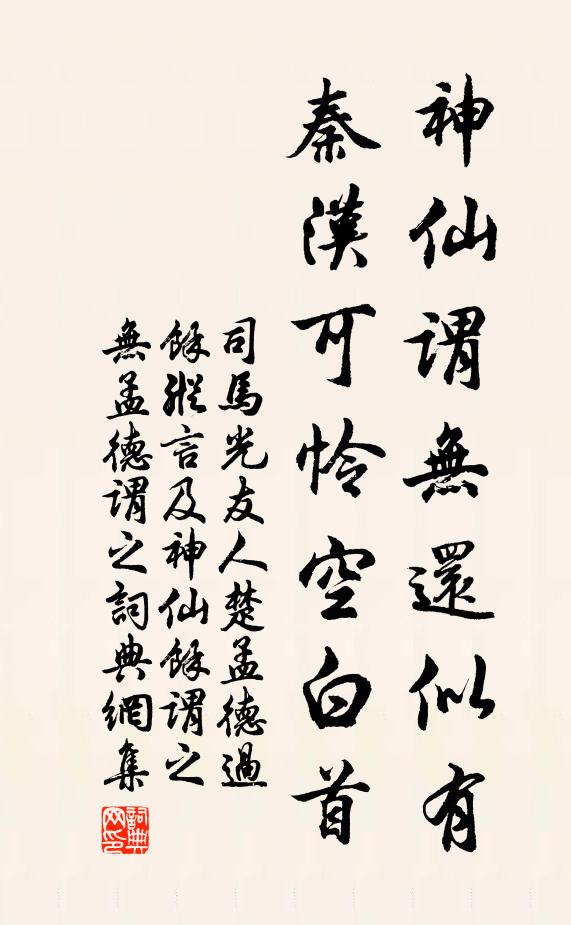 神仙謂無還似有
秦漢可憐空白首
司馬光友人楚孟德過
餘縱言及神仙餘謂之
無孟德謂之詞典網集
詞典網印